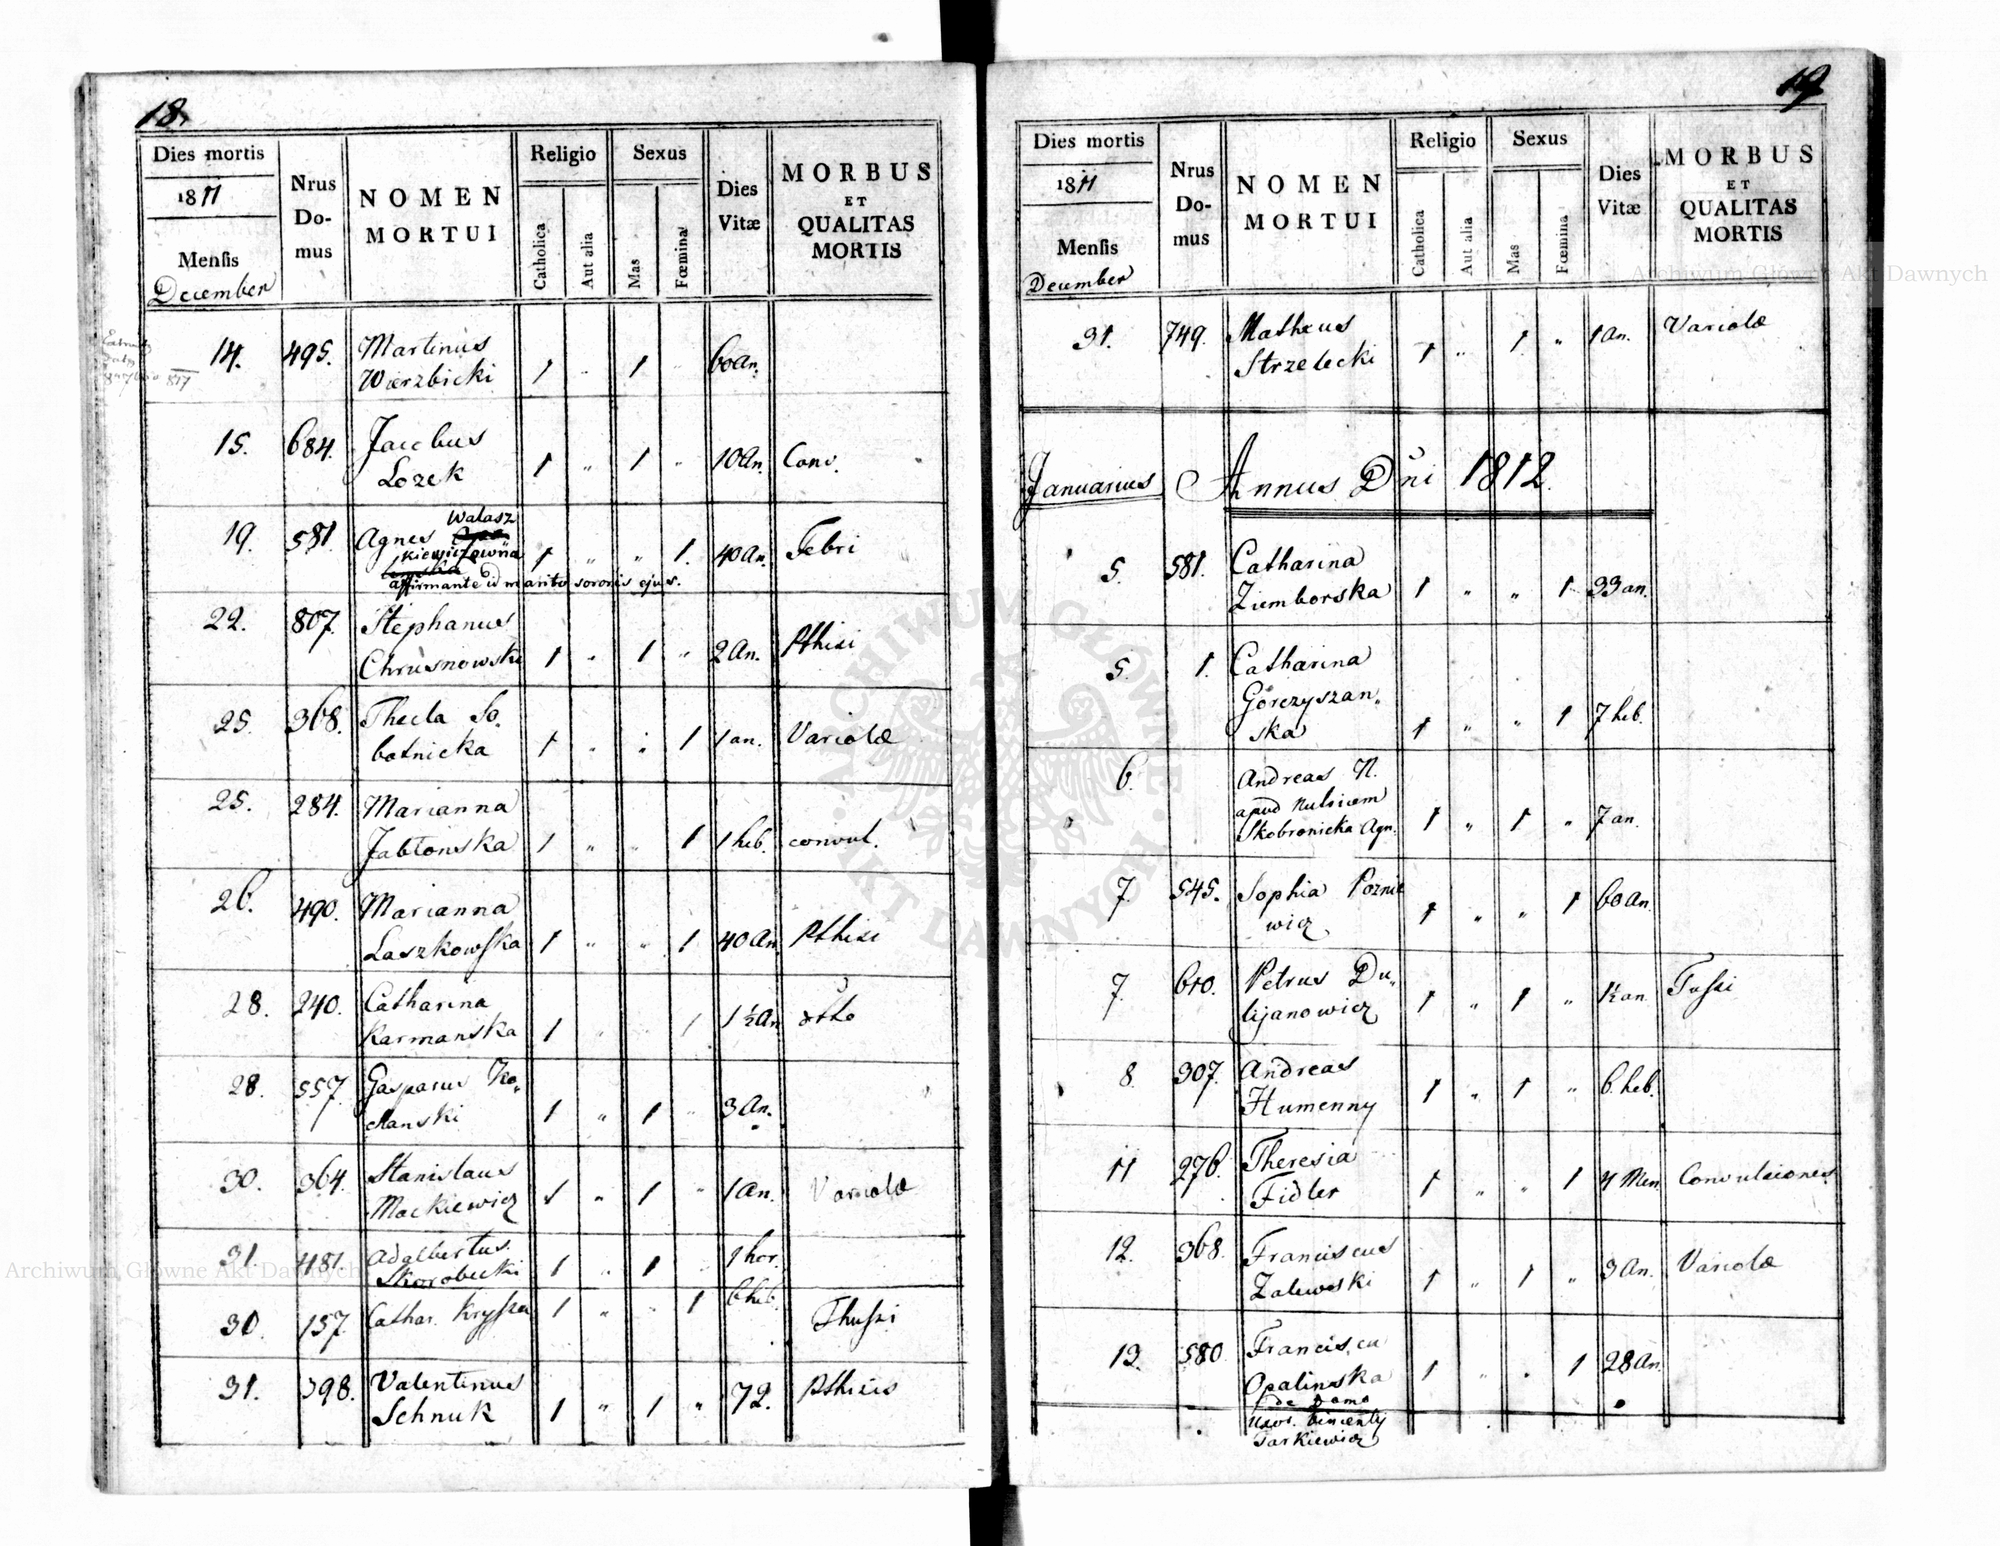 18.
Dies mortis
1811
Mensis
December
Nrus Domus
NOMEN MORTUI
Religio
Catholica
Aut alia
Sexus
Mas
Fœmina
Dies Vitæ
MORBUS ET QUALITAS MORTIS
14. 495. Martinus
Wierzbicki 1 " 1 " 60 an.
15. 684. Jacobus
Lozek 1 " 1 " 10 an. Conv.
19. 581. Agnes Walasz
kiewiczowna 1 " " 1. 40 an. Febri
affirmante id marito sororis ejus.
22. 807. Stephanus
Chrusnowski 1 " 1 " 2 an. Pthisi
25. 368. Thecla So„
botnicka 1 " " 1 1 an. Variolæ
25. 284. Marianna
Jabłonska 1 " " 1 1 heb. convul.
26. 490. Marianna
Laszkowska 1 " " 1 40 an. Pthisi
28. 240. Catharina
Karmanska 1 " " 1 1½ an
28. 557. Gasparus Ko„
1 " 1 " 3 an.
30. 364. Stanislaus
Mackiewicz 1 " 1 " 1 an. Variolæ
31. 481. Adalbertus
Skorobecki 1 " 1 1 hor.
30. 157. Cathar. 1 " " 1 6 heb. Thussi
31. 398. Valentinus
Schnuk 1 " 1 " 72. Pthisis
19
Dies mortis
1811
Mensis
December
Nrus Domus
NOMEN MORTUI
Religio
Catholica
Aut alia
Sexus
Mas
Fœmina
Dies Vitæ
MORBUS ET QUALITAS MORTIS
31. 749. Matheus
Strzelecki 1 " 1 " 1 an. Variolæ
Januarius Annus Dni 1812.
5. 581. Catharina
Ziemborska 1 " " 1 33 an.
5. 1. Catharina
Gorczyszan„
ska 1 " " 1 7 heb.
6. Andreas N.
apud nutricem
Skobronicka Agn. 1 " 1 " 7 an.
7. 545. Sophia Poznie
wicz 1 " " 1 60 an.
7. 610. Petrus Du„
lijanowicz 1 " 1 " 1½ an. Tussi
8. 307. Andreas
Humenny 1 " 1 " 6. heb.
11 276. Theresia
Fidler 1 " " 1 4 Men. Convulsiones
12. 368. Franciscus
Zalewski 1 " 1 " 3 an. Variolæ
13. 580. Francisca
Opalinska 1 " " 1 28 an.
de Domo
Uxor. Vincenty
Tarkiewicz
Archiwum Główne Akt Dawnych
Archiwum Główne Akt Dawnych
ARCHIWUM GŁÓWNE · AKT DAWNYCH ·